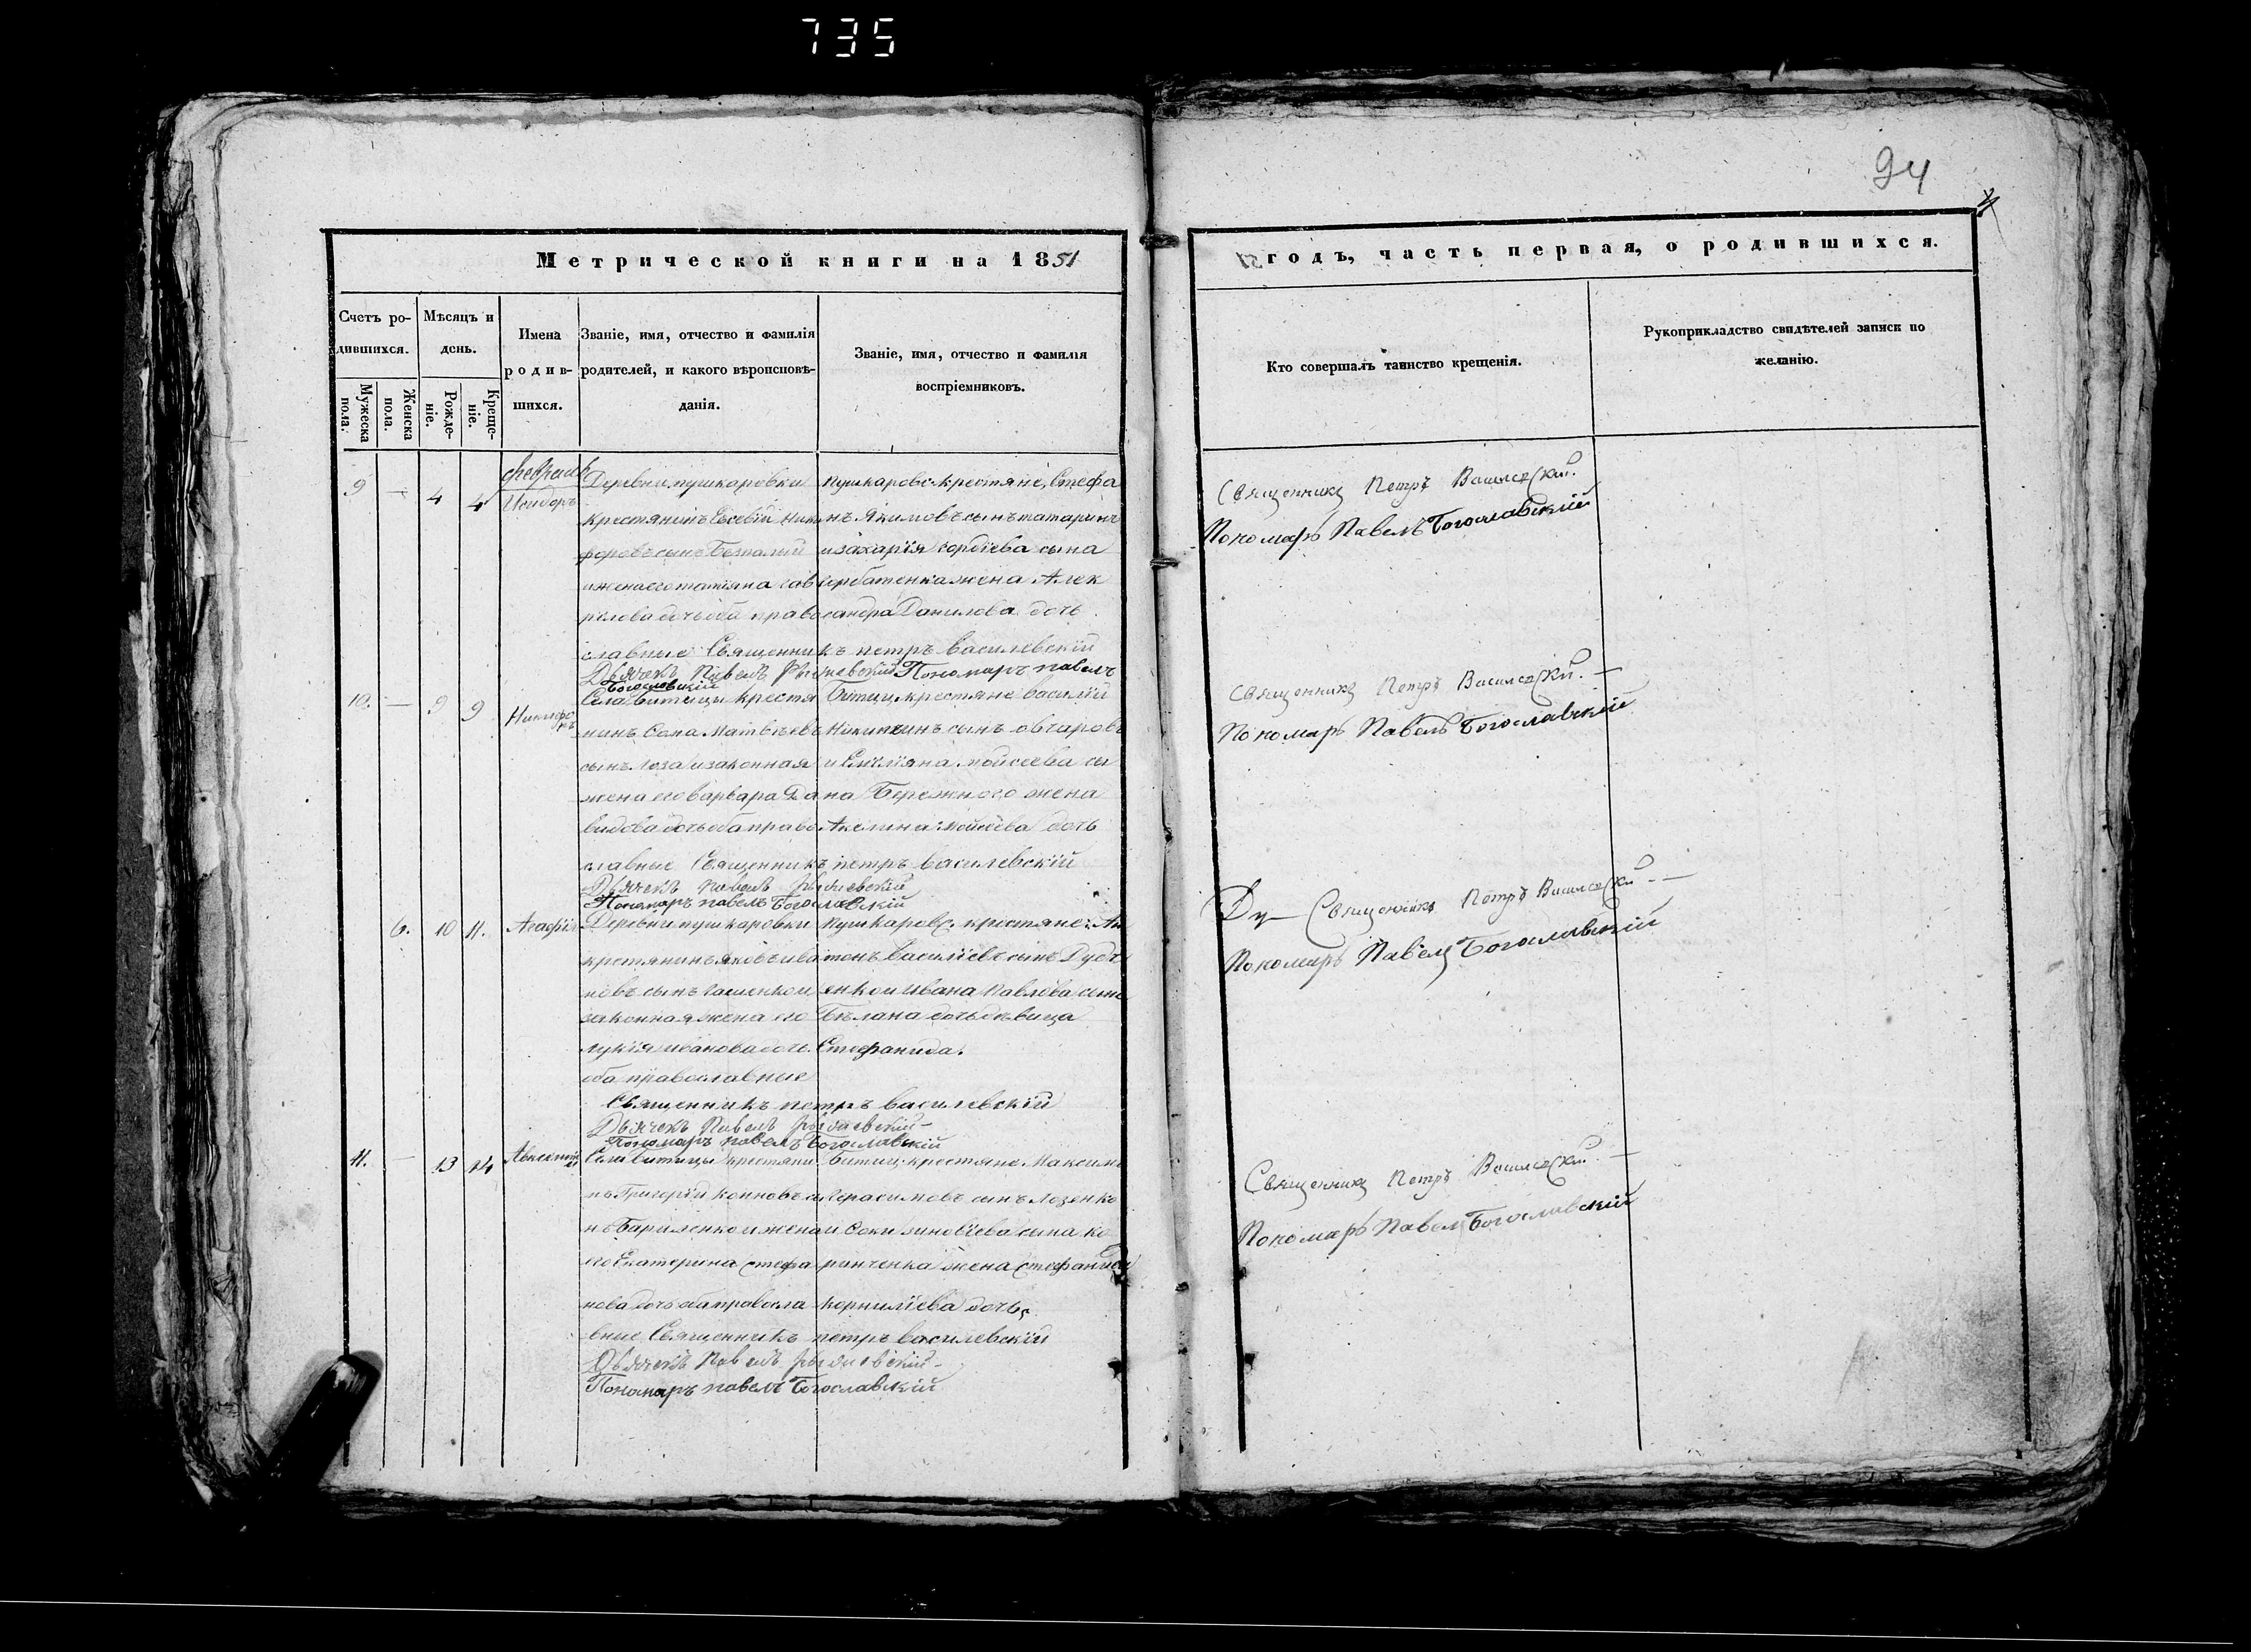 735
94
Метрической книги на 1851
51 годъ, часть первая, о родившихся.
Счетъ ро-
дившихся.
Мѣсяцъ и
день.
Имена
родив-
шихся.
Званіе, имя, отчество и фамилія
родителей, и какого вѣроисповѣ-
данія.
Званіе, имя, отчество и фамилія
воспріемниковъ.
Мужеска
пола.
Женска
пола.
Рожде-
ніе.
Креще-
ніе.
Кто совершалъ таинство крещенія.
Рукоприкладство свидѣтелей записи по
желанію.
февраль
9 — 4 4 Исидоръ
Деревни пушкаровки
крестянинъ Евсевій Ники
форовъ сынъ
и жена его татіяна гав
рілова дочь оба право
славные Священникъ петръ василевскій
Дьячекъ Павелъ Пономаръ павелъ
Богославскій
Пушкаровс. крестяне, Стефа
нъ Якимовъ сынъ татаринъ
и захарія гордіева сына
горбатенка жена Алек
сандра Данилова дочь
Священникъ Петръ Василевскій.
Пономарь Павелъ Богославскій
10. — 9 9 Никифо
ръ
Села битицы крестя
нинъ Сава Матвѣевъ
сынъ Лоза и законная
жена его варвара Да
видова дочь оба право
славные Священникъ петръ василевскій
Дьячекъ Павелъ
Пономаръ павелъ Богославскій
Битиц. крестяне василій
Никитинъ сынъ овчаровъ
и Емиліяна мойсеева сы
на Бережного жена
Акилина мойсеева дочь
Священникъ Петръ Василевскій. —
Пономарь Павелъ Богославскій
6. 10 11. Агафія
Деревни пушкаровки
крестянинъ яковъ ива
новъ сынъ
законная жена его
лукія иванова дочь
оба православные
Священникъ петръ василевскій
Дьячекъ Павелъ
Пономаръ павелъ Богославскій
Пушкаровс. крестяне: Ан
тонъ Василіевъ сынъ Дудч
енко и Ивана Павлова сына
Бѣлана дочь дѣвица
Стефанида.
Священникъ Петръ Василевскій. —
Пономарь Павелъ Богославскій
11. — 13 14 Авксентій
Села Битицы крестяни
нъ Григорій
нъ Бариленко и жена
его Екатерина стефа
нова дочь оба правосла
вные Священникъ петръ василевскій
Дьячекъ Павелъ
Пономаръ павелъ Богославскій
Битиц. крестяне Максимъ
Герасимовъ сынъ Лозенко
зиновіева сына ко
жена Стефанида
корниліева дочь
Священникъ Петръ Василевскій. —
Пономарь Павелъ Богославскій